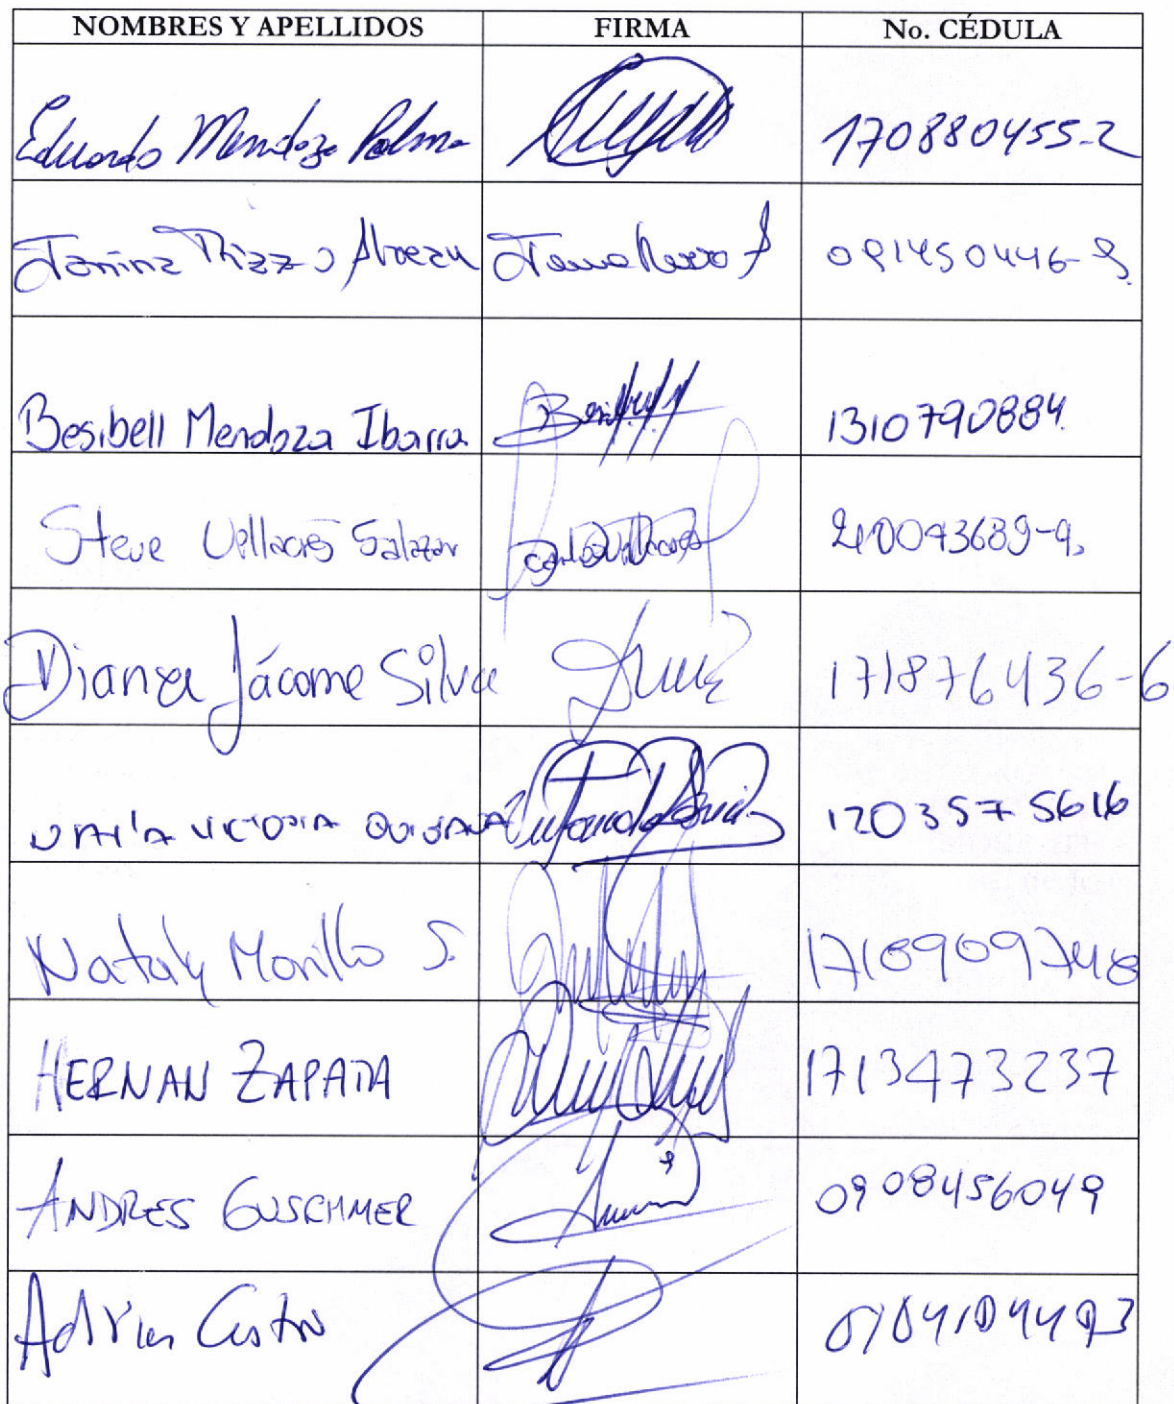 NOMBRES Y APELLIDOS FIRMA No. CÉDULA
Eduardo Mendoza Palma 170880455-2
Janina Rizzo Alvear 091450446-9
Besibell Mendoza Ibarra 1310790884
Steve Villacres Salazar Carlos Villacres
Diana Jácome Silva 171876436-6
VICTORIA 1203575616
Nataly Morillo S. 1718909748
HERNAN ZAPATA 1713473237
ANDRES GUSCHMER 0908456049
Adrian Castro